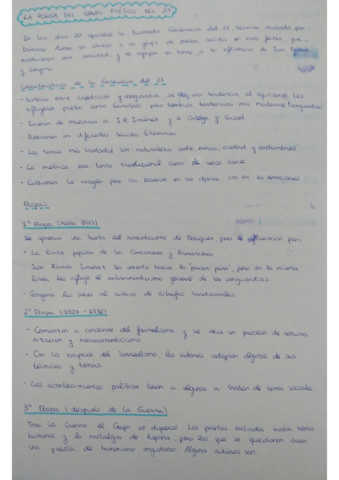 LA POESÍA DEL GRUPO POÉTICO DEL 27
En los años 20 aparece la llamada Generación del 27, término acuñado por
Dámaso Alonso en alusión a un grupo de poetas nacidos en esas fechas, que
mantuvieron una amistad, y se agrupan en torno a la influencia de Juan Ramón
y Góngora.
Características de la Generación del 27
- Síntesis entre tradición y vanguardia: se observa tendencia al equilibrio. Les
influyeron poetas como Garcilaso pero también tendencias más modernas (vanguardias)
- Tuvieron de maestros a J.R Jiménez y a Ortega y Gasset
- Publicaron en diferentes revistas literarias
- Los temas más tratados son naturaleza, arte, amor, ciudad y costumbres
- La métrica era tanto tradicional como de verso libre
- Cultivaron la imagen pero sin basarse en las emociones
Etapas
1ª Etapa (hasta 1927)
Se aprecia una huella del romanticismo de Bécquer, pero influencias por:
- La lírica popular de los Cancioneros y Romanceros
- Juan Ramón Jiménez los orienta hacia la "poesía pura", pero en la misma
línea les influye el antirromanticismo general de las vanguardias
- Góngora los lleva al cultivo de estrofas tradicionales
2ª Etapa (1927 - 1936)
- Comienzan a cansarse del formalismo y se inicia un proceso de
y neorromanticismo
- Con la irrupción del Surrealismo los autores adoptan algunas de sus
técnicas y temas
- Los acontecimientos políticos llevan a algunos a tratar de temas sociales
3ª Etapa (después de la Guerra)
Tras la Guerra el Grupo se dispersó. Los poetas exiliados tratan temas
humanos y la nostalgia de España, pero los que se quedaron crean
una poesía de humanismo angustiado. Algunos autores son: